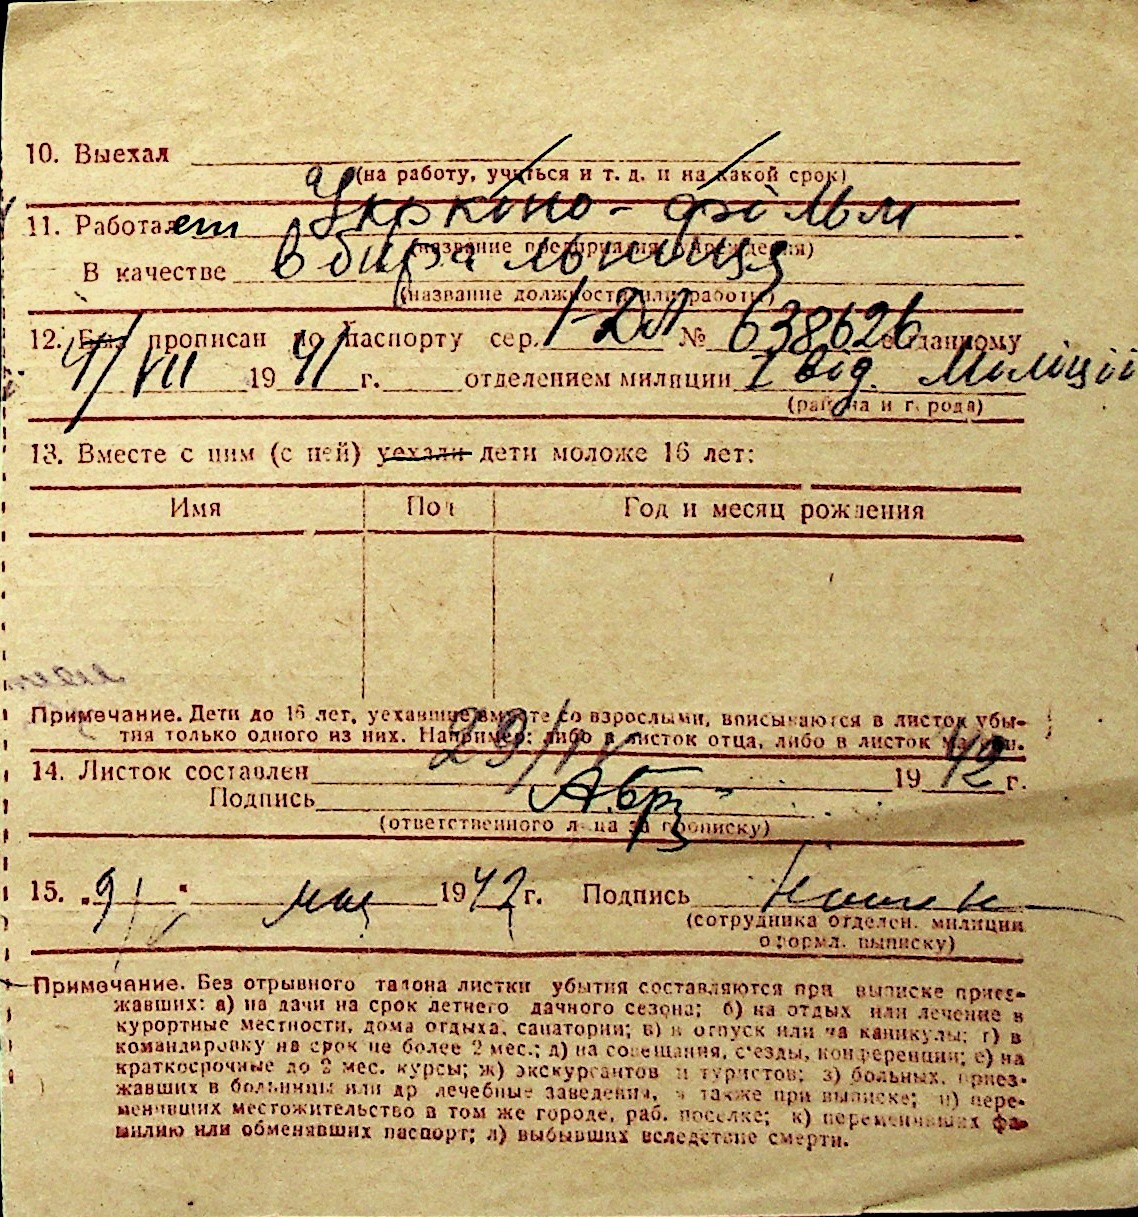 10. Выехал
(на работу, учиться и т. д. и на какой срок)
11. Работает Укркіно-фільм
(название предприятия, учреждения)
В качестве вбиральниця
(название должности или работы)
12. Был прописан по паспорту сер. 1-ДЛ № 638626 выданному
4/VII 1941 г. отделением милиции 1 від. Міліції
(района и города)
13. Вместе с ним (с ней) уехали дети моложе 16 лет:
Имя Пол Год и месяц рождения
Примечание. Дети до 16 лет, уехавшие вместе со взрослыми, вписываются в листок убы-
тия только одного из них. Например: либо в листок отца, либо в листок матери.
14. Листок составлен 29/IV 1942 г.
Подпись
(ответственного лица за прописку)
15. „9" мая 1942 г. Подпись
(сотрудника отделен. милиции
оформл. выписку)
Примечание. Без отрывного талона листки убытия составляются при выписке приез-
жавших: а) на дачи на срок летнего дачного сезона; б) на отдых или лечение в
курортные местности, дома отдыха, санатории; в) в отпуск или на каникулы; г) в
командировку на срок не более 2 мес.; д) на совещания, съезды, конференции; е) на
краткосрочные до 2 мес. курсы; ж) экскурсантов и туристов; з) больных, приез-
жавших в больницы или др лечебные заведения, а также при выписке; и) пере-
менивших местожительство в том же городе, раб. поселке; к) переменивших фа-
милию или обменявших паспорт; л) выбывших вследствие смерти.